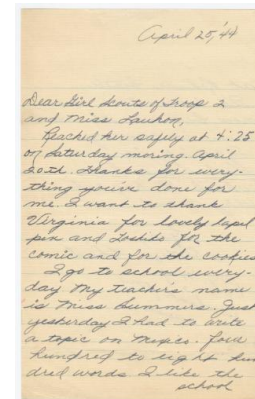 April 25,'44
Dear Girl Scouts of Troop 2
and Miss
Reached her safely at 4:25
on Saturday moring. April
20th. Thanks for every-
thing you've done for
me. I want to thank
Virginia for lovely lapel
pin and Toshiko for the
comic and for the cookies
I go to school every-
day My teacher's name
is Miss Summers. Just
yesterday I had to write
a topic on Mexico. four
hundred to eight hun
dred words I like the
school